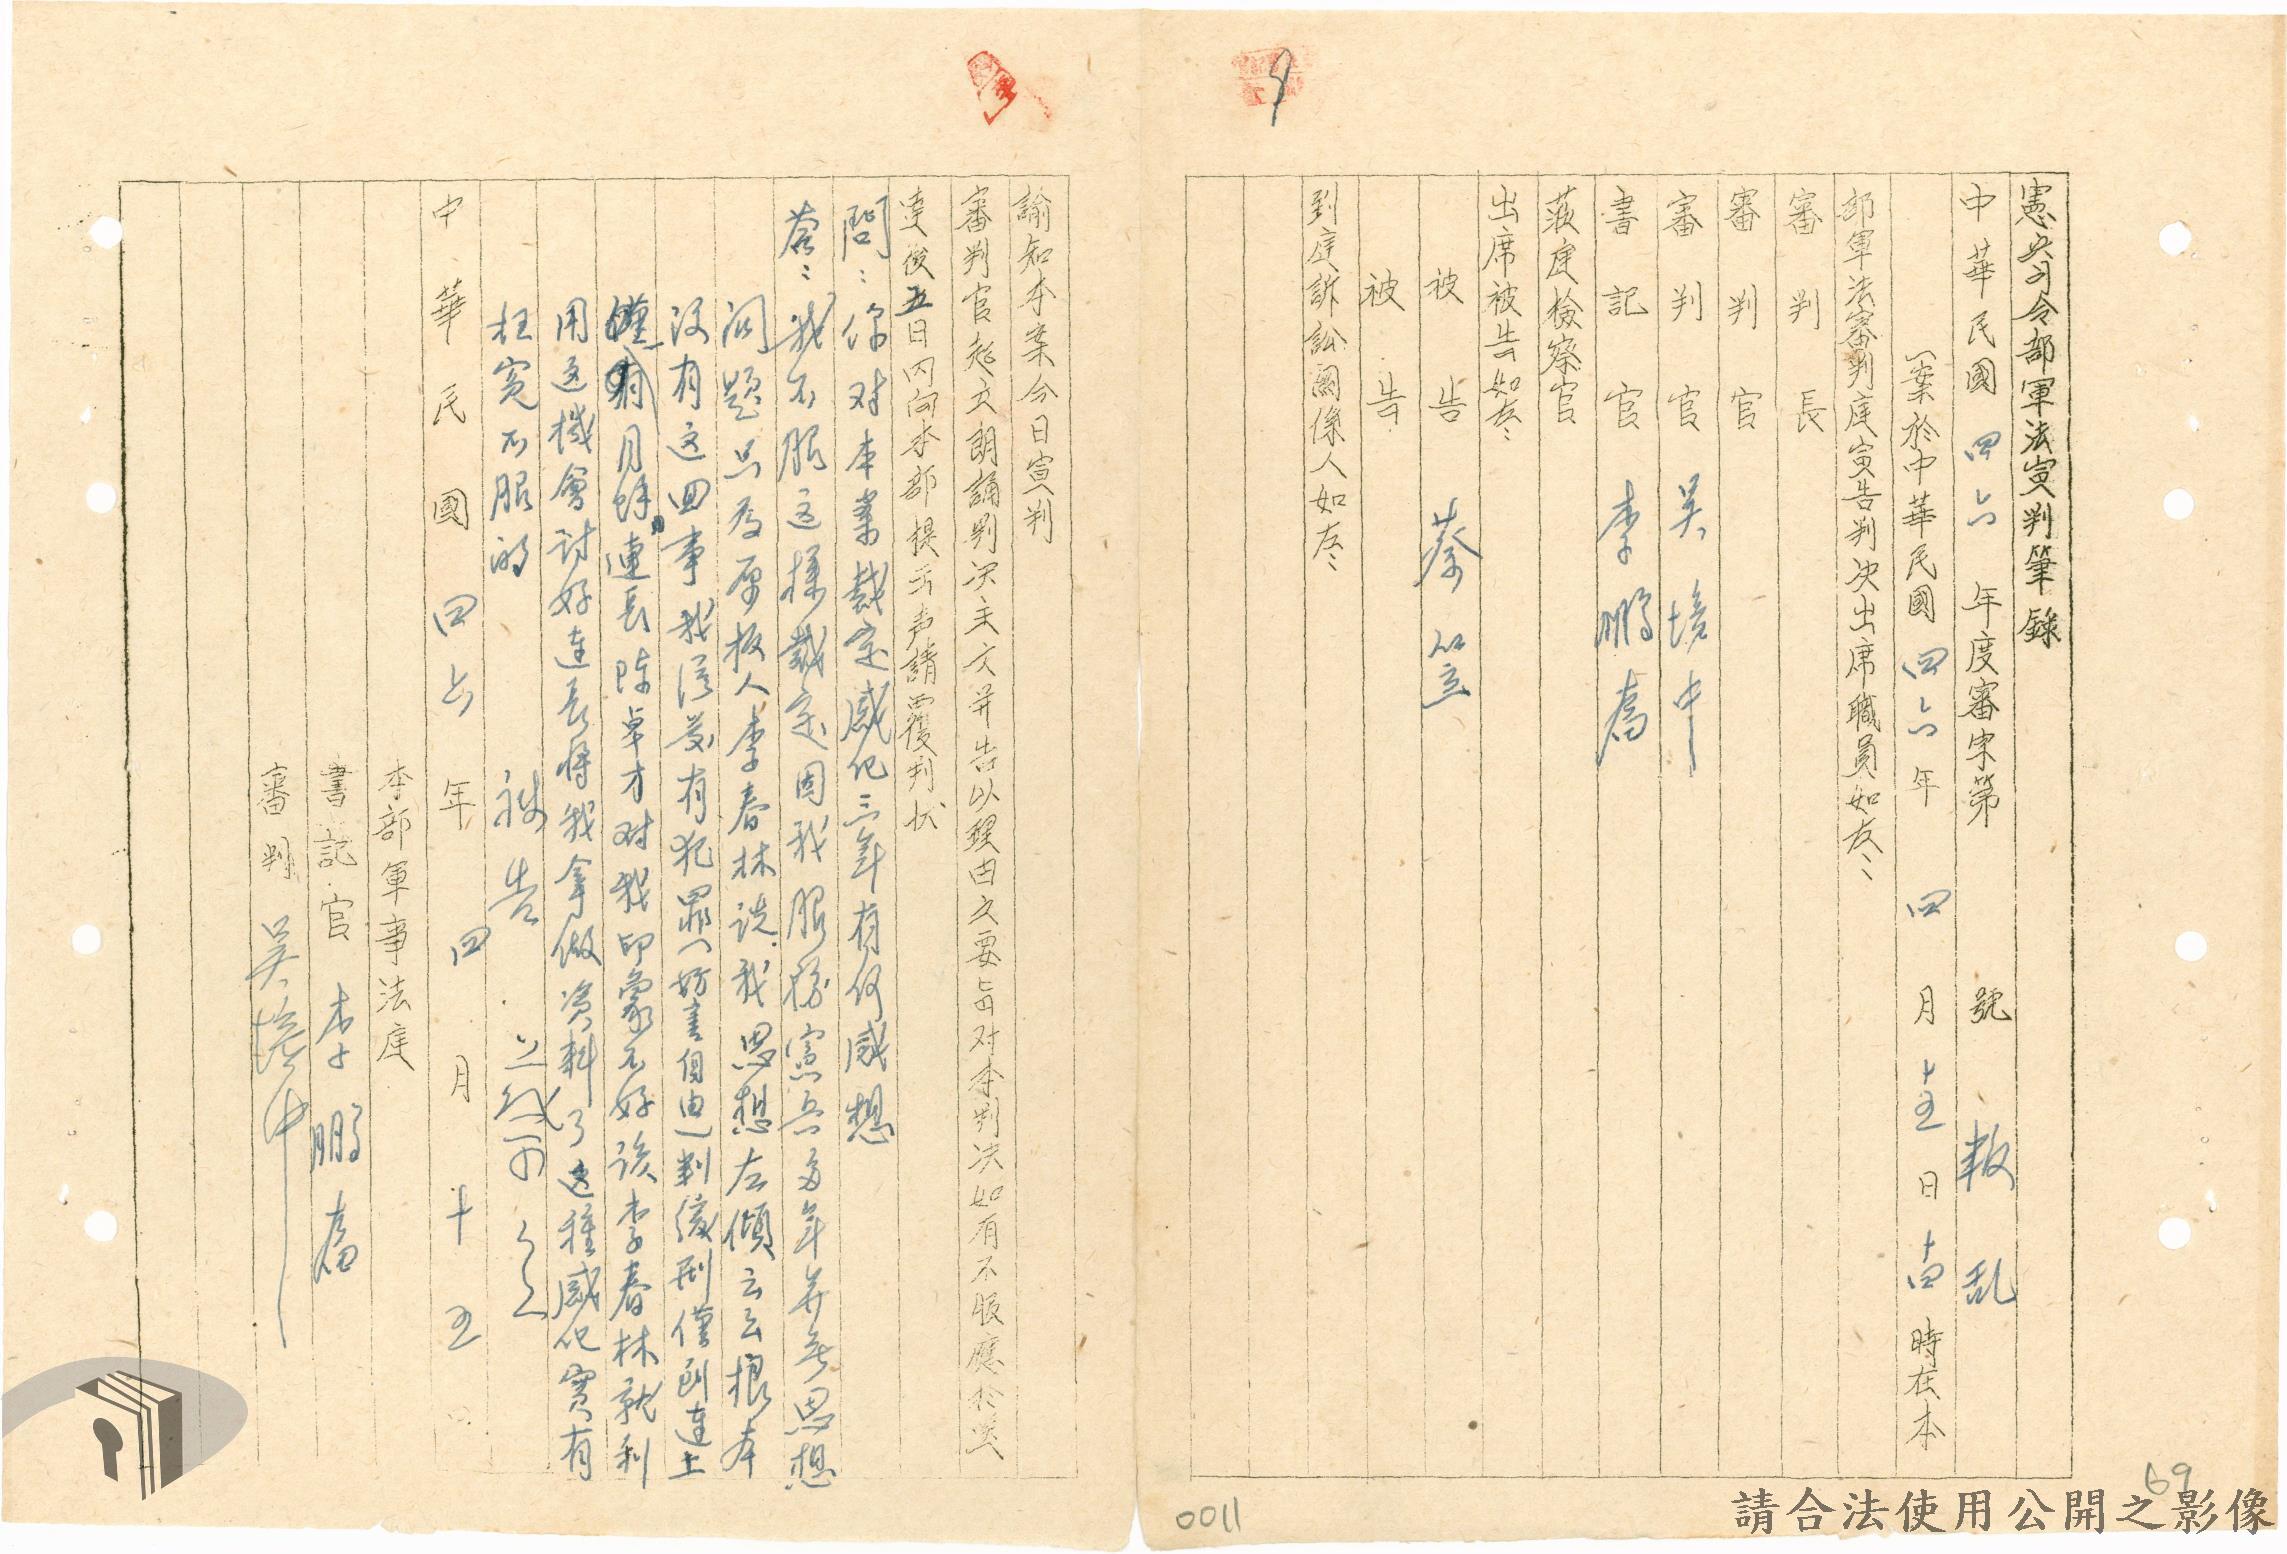 憲兵司令部軍法宣判筆錄
中華民國四六年度審字第 號 叛乱
一案於中華民國四六年四月十五日十四時在本
部軍法審判庭宣告判決出席職員如左：
審判長
審判官
審判官 吴培中
書記官 李鵬奮
蒞庭檢察官
出席被告如左：
被告 蔡竺
被告
到庭訴訟關係人如左：
諭知本案今日宣判
審判官起立朗誦判決主文并告以理由之要旨对本判决如有不服應於送
達後五日内向本部提出声請覆判状
問：你对本案裁定感化三年有何感想
答：我不服这様裁定因我服務憲兵多年并無思想
問題只為原板人李春林説我思想左傾云云根本
没有这回事我從前有犯罪(妨害自由)判緩刑僅到連上
僅 月餘連長陈卓才对我印象不好該李春林就利
用这機會討好連長將我拿做資料了这種感化實有
枉寃不服的
被告
中華民國四六年四月十五日
本部軍事法庭
書記官 李鵬奮
審判 吴培中
0011
69
請合法使用公開之影像